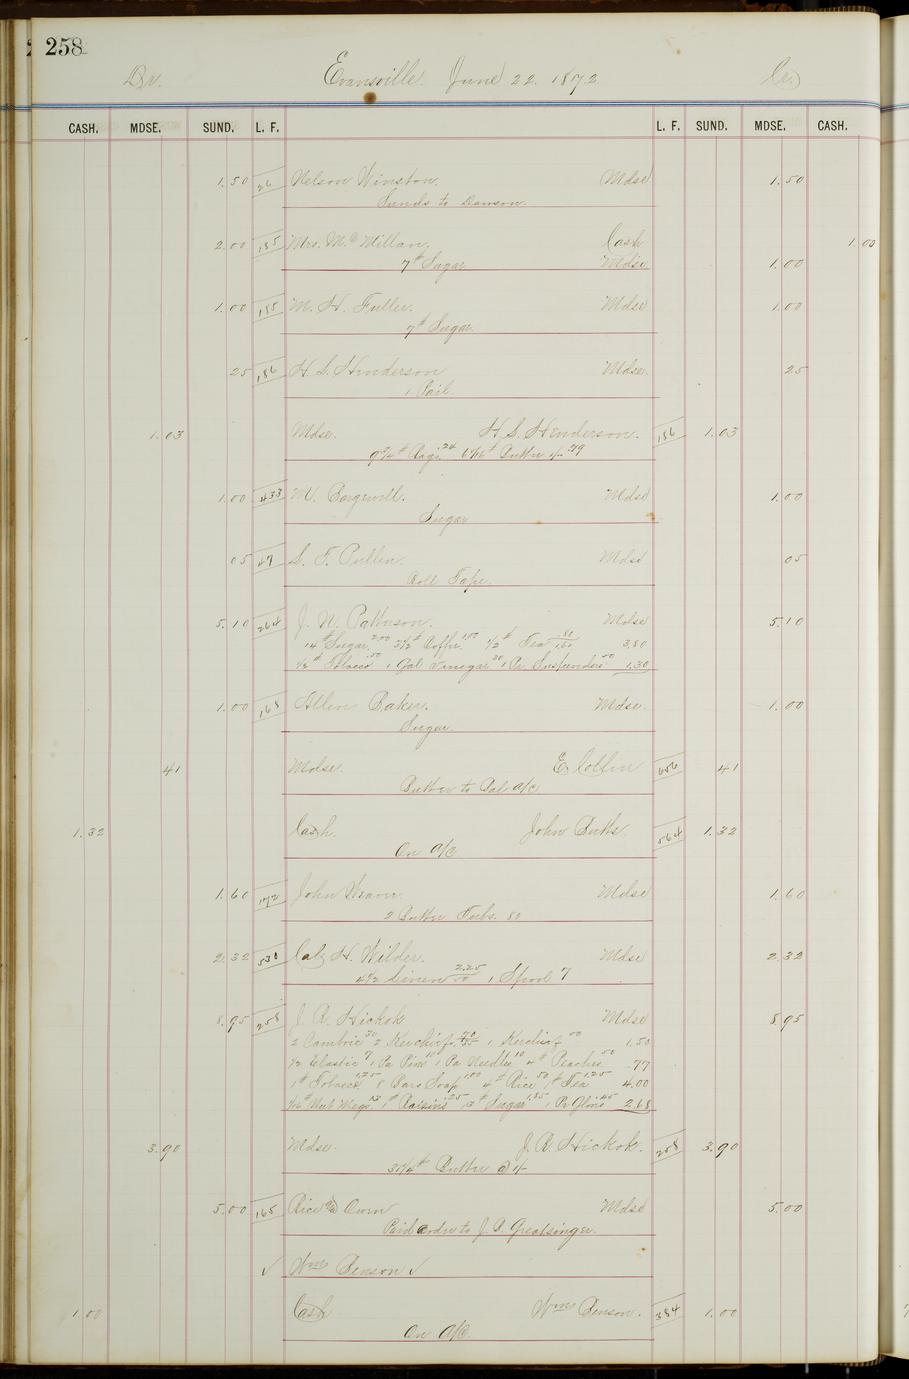 258
Dr. Evansville. June 22. 1872. Cr.
CASH. MDSE. SUND. L. F. L. F. SUND. MDSE. CASH.
1.50 26 Nelson Winston. Mdse 1.50
Sunds to Dawson.
2.00 185 Mrs. Mc Millan. Cash 1.00
7# Sugar Mdse. 1.00
1.00 155 M. H. Fuller. Mdse 1.00
7# Sugar
25 186 H. S. Henderson Mdse. 25
1 Pail
1.03 Mdse. H. S. Henderson. 186 1.03
9¾# Rags .24 Butter .79
1.00 433 M. Mdse 1.00
Sugar
05 47 S. F. Pullen. Mdse 05
Roll Tape.
5.10 264 J. W. Patterson. Mdse 5.10
14# Sugar 2.00 Coffee 1.00 ½# Tea .80 3.80
½# Tobacco .50 1 Gal Vinegar 1 Pr. Suspenders 50 1.30
1.00 165 Allen Baker. Mdse. 1.00
Sugar.
41 Mdse. E. Coffin 41
Butter to Bal a/c
1.32 Cash. John Butts. 564 1.32
On a/c
1.60 172 John Weaver. Mdse 1.60
2 Butter Tubs. 80
2.32 530 H. Wilder. Mdse 2.32
4½ Linen 2.25 1 Spool 7
8.95 258 J. R. Hickok Mdse 8.95
2 Cambric 30 2 Kerchiefs 70 1 Kerchief 50 1.50
½ Elastic 7 1 Pa Pins 10 1 Pa Needles 10 4# Peaches 50 .77
1# Tobacco 1.25 8 Bars Soap 1.00 4# Rice 50 1# Tea 1.25 4.00
1# Raisins 25 Sugar 1.85 1 Pr Gloves 45 2.68
3.90 Mdse. J. R. Hickok. 258 3.90
Butter @
5.00 165 Rice Mdse 5.00
Paid order to J. P. Greatsinger.
✓ Wm Benson ✓
1.00 Cash Wm Benson. 384 1.00
On a/c